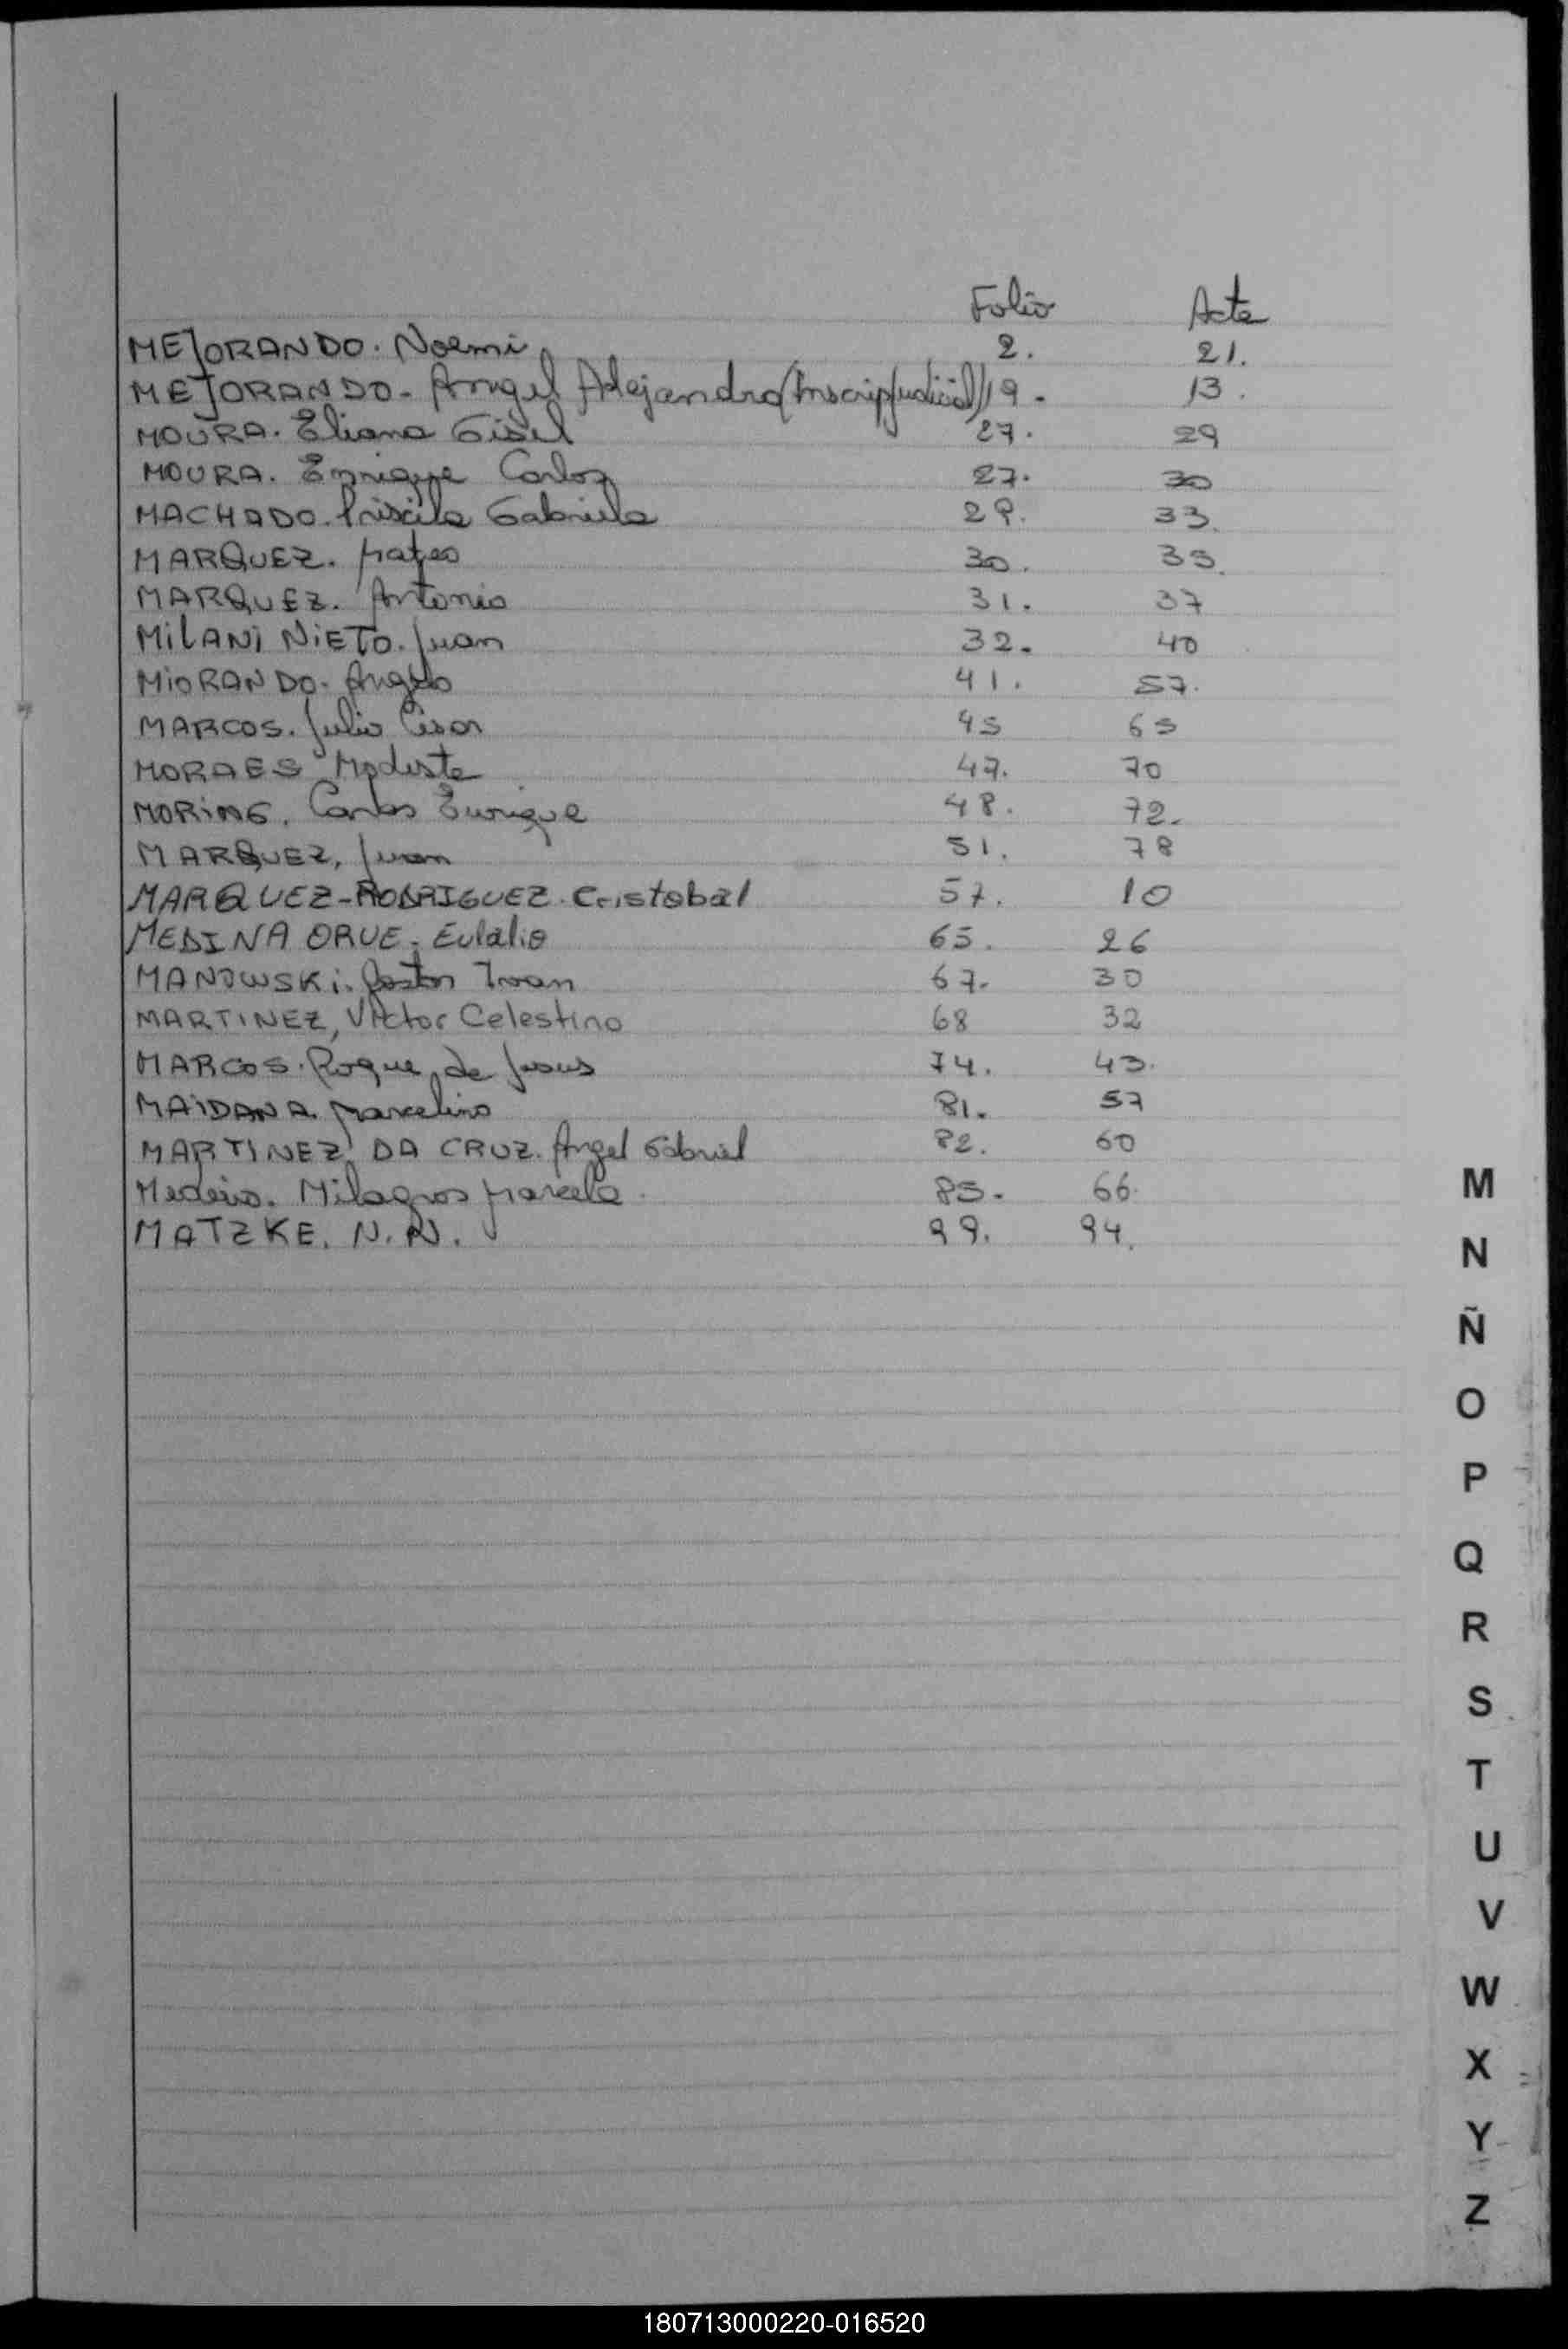 Folio Acta
MEJORANDO. Noemi 2. 21.
MEJORANDO - Angel Alejandro (Inscrip Judicial) 19. 13.
MOURA. Eliana Gisel 27. 29
MOURA. Enrique Carlos 27. 30
MACHADO. Priscila Gabriela 29. 33.
MARQUEZ. Mateo 30. 35.
MARQUEZ. Antonio 31. 37
MiLANi NiETO. Juan 32. 40
MiORANDO. Angelo 41. 57.
MARCOS. Julio Cesar 45 65
MORAES Modesta 47. 70
MORiNG. Carlos Enrique 48. 72.
MARQUEZ, Juan 51. 78
MARQUEZ-RODRIGUEZ. Cristobal 57. 10
MEDINA ORUE. Eulalio 65. 26
MANOWSKi. Ivan 67. 30
MARTINEZ, Victor Celestino 68 32
MARCOS. Roque de Jesus 74. 43.
MAiDANA. Marcelino 81. 57
MARTINEZ DA CRUZ. Angel Gabriel 82. 60
Medeiro. Milagros Marcela. 85. 66.
MATZKE. N.N. 99. 94.
M
N
Ñ
O
P
Q
R
S
T
U
V
W
X
Y
Z
180713000220-016520